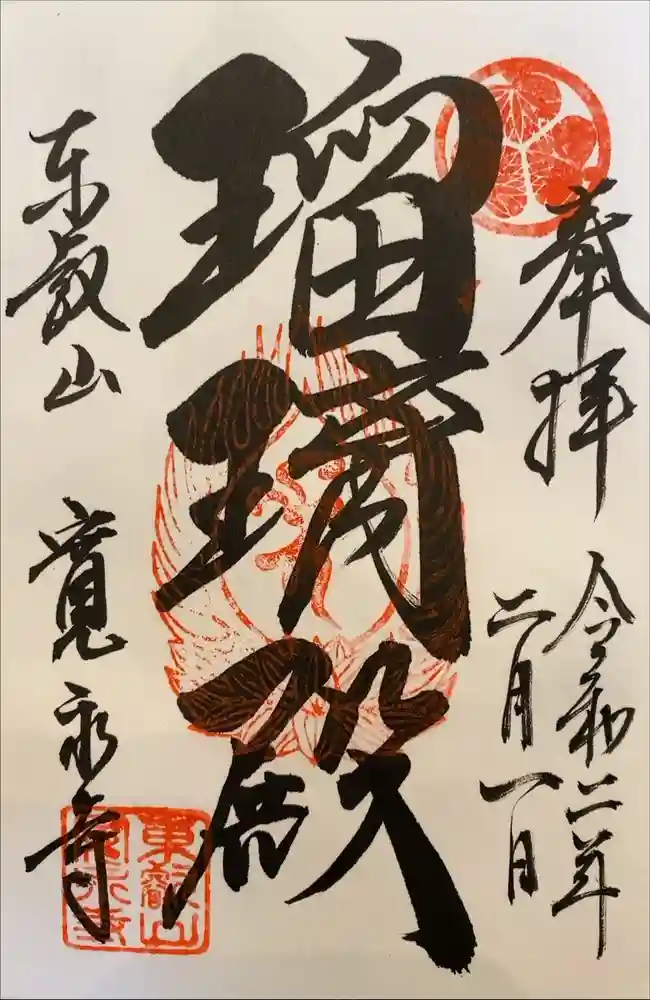 奉拝
令和二年
二月一日
瑠璃殿
東叡山
寛永寺
東叡山
寛永寺